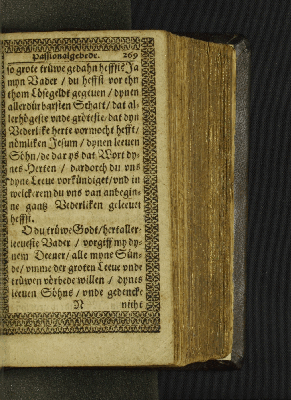 Passionalgebede. 269
so grote trüwe gedahn heffst? Ja
myn Vader / du heffst vor ehn
thom Lösegeldt gegeuen / dynen
allerdürbarsten Schatt / dat al-
lerhögeste vnde gröteste / dat dyn
Vederlike herte vormocht hefft /
nömliken Jesum / dynen leeuen
Söhn / de dar ys dat Wort dy-
nes Herten / dardorch du vns
dyne Leeue vorkündiget / vnd in
welckerem du vns van anbegin-
ne gantz Vederliken geleeuet
heffst.
O du trüwe Godt / hertaller-
leeueste Vader / vorgiff my dy-
nem Deener / alle myne Sün-
de / vmme der groten Leeue vnde
trüwen vörbede willen / dynes
leeuen Söhns / vnde gedencke
N nicht